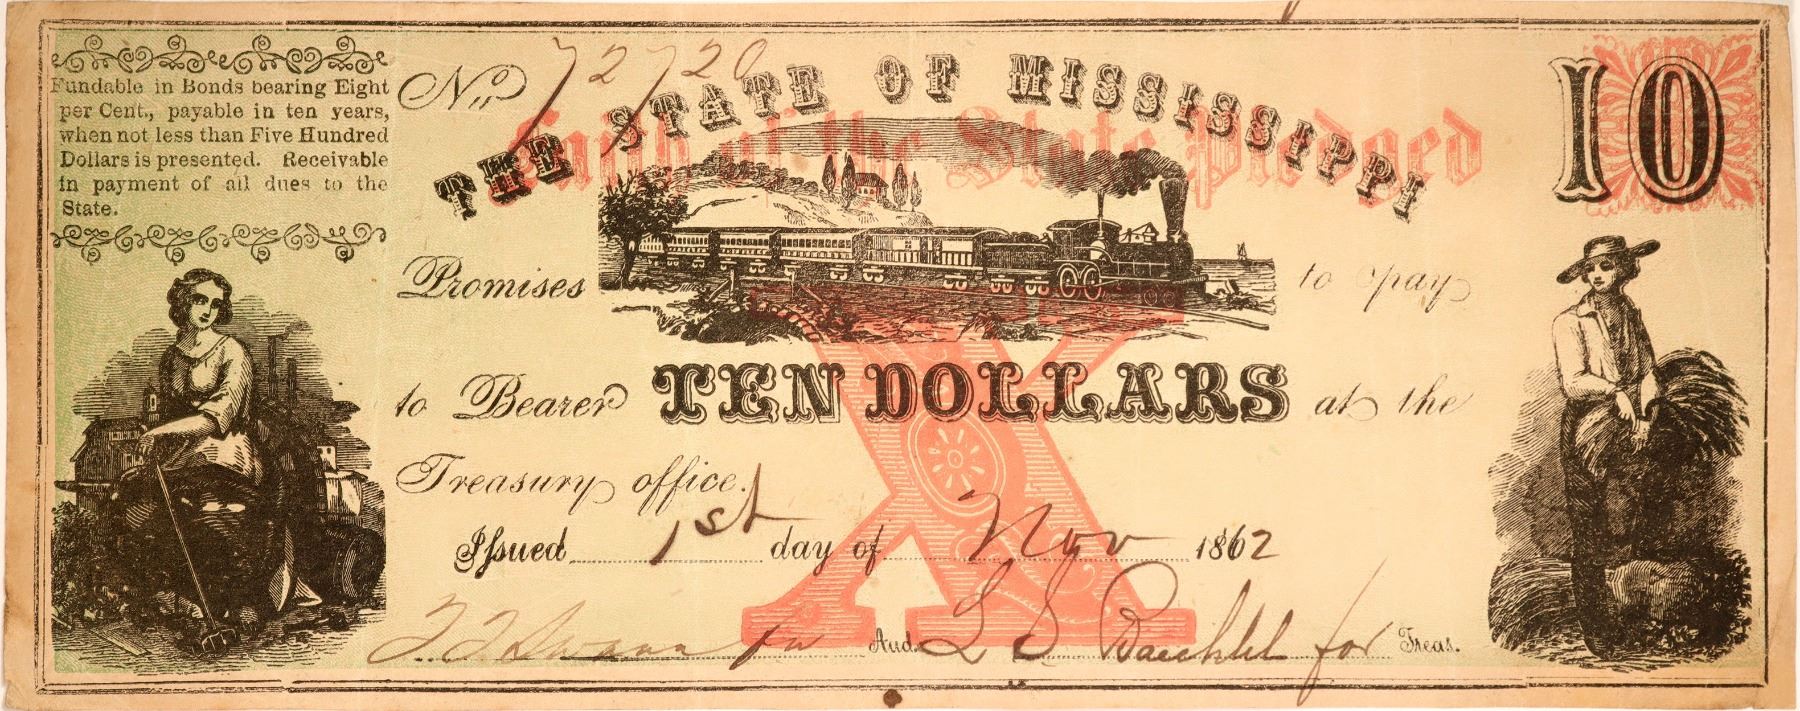 Fundable in Bonds bearing Eight
per Cent., payable in ten years,
when not less than Five Hundred
Dollars is presented. Receivable
in payment of all dues to the
State.
No 72720
THE STATE OF MISSISSIPPI
Faith of the State Pledged
10
Promises to pay
to Bearer TEN DOLLARS at the
Treasury office.
X
Issued 1st day of Nov 1862
Aud. for Treas.